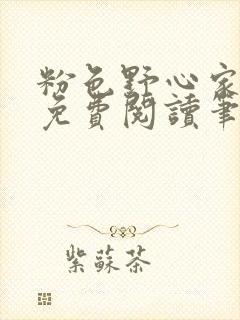 粉色野心家
免費閱讀筆
紫蘇茶